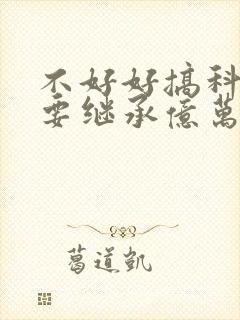 不好好搞科
要继承億萬
葛道凯